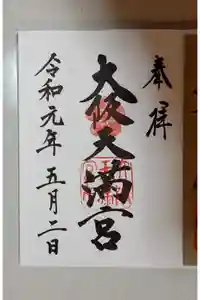 奉拝
大阪天満宮
令和元年五月二日